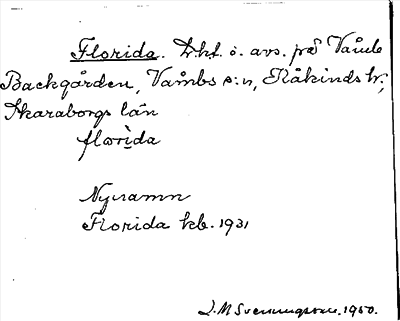 Florida. Lht. o. avs. på Våmb
Backgården, Våmbs s:n, Kåkinds hd,
Skaraborgs län
florida
Nynamn
Florida kb. 1931
J. M. Svenningson. 1950.